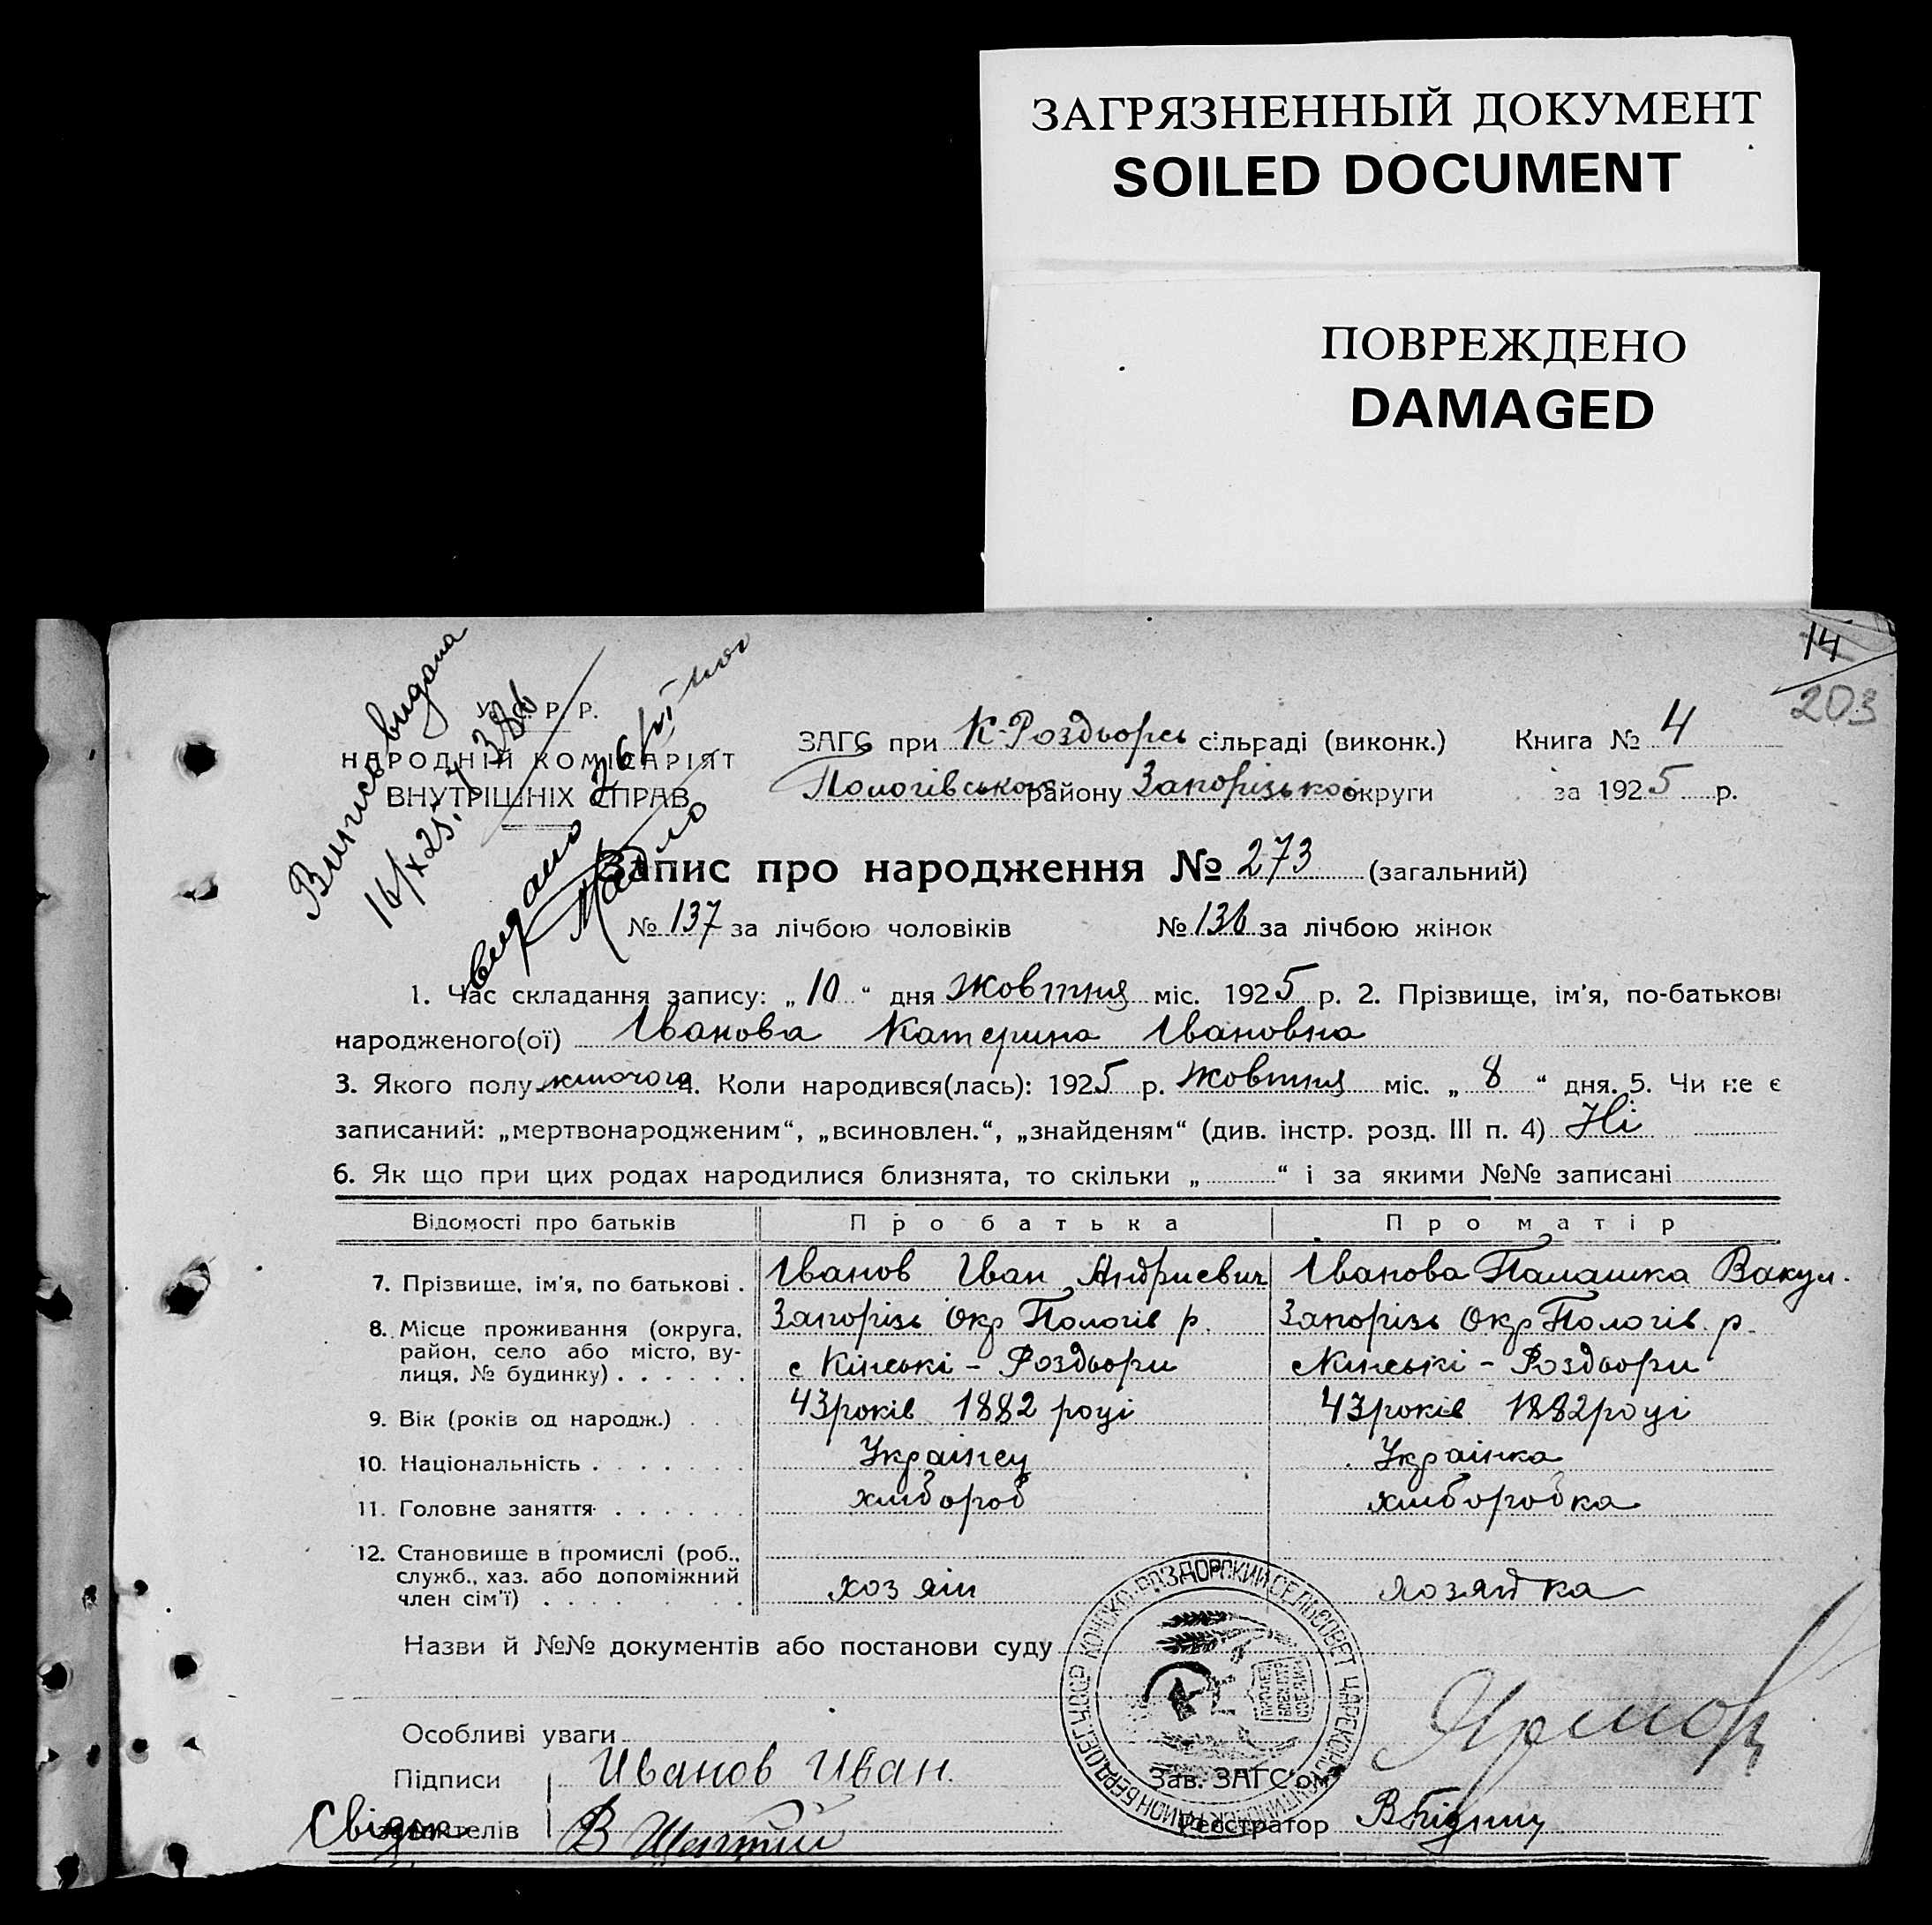 ЗАГРЯЗНЕННЫЙ ДОКУМЕНТ
SOILED DOCUMENT
ПОВРЕЖДЕНО
DAMAGED
14
203
Випись видана
16/X 25.
видано
У. Р. Р.
НАРОДНІЙ КОМІСАРІЯТ
ВНУТРІШНІХ СПРАВ
ЗАГС при К-Роздьорсь сільраді (виконк.) Книга № 4
Пологівського району Запорізькой округи за 1925 р.
Запис про народження № 273 (загальний)
№ 137 за лічбою чоловіків № 136 за лічбою жінок
1. Час складання запису: „ 10 “ дня Жовтня міс. 1925 р. 2. Прізвище, ім'я, по-батькові
народженого(ої) Іванова Катерина Івановна
3. Якого полу жіночого 4. Коли народився(лась): 1925 р. Жовтня міс. „ 8 “ дня. 5. Чи не є
записаний: „мертвонародженим“, „всиновлен.“, „знайденям“ (див. інстр. розд. III п. 4) Ні
6. Як що при цих родах народилися близнята, то скільки „ “ і за якими №№ записані
Відомості про батьків Про батька Про матір
7. Прізвище, ім'я, по батькові . Іванов Іван Андриевич Іванова Палашка Вакул.
8. Місце проживання (округа, Запорізь Окр Пологів р. Запорізь Окр Пологів. р.
район, село або місто, ву-
лиця, № будинку) . . . . . . с Кінські - Роздьори с Кінські - Роздьори
9. Вік (років од народж.) . . . 43 років 1882 році 43 років 1882 році
10. Національність . . . . . . . Українец Українка
11. Головне заняття . . . . . . хлібороб хліборобка
12. Становище в промислі (роб.,
служб., хаз. або допоміжний
член сім'ї) . . . . . . . хозяін хозяйка
Назви й №№ документів або постанови суду
КОНСКО-РАЗДОРСКИЙ СЕЛЬСОВЕТ ЦАРЕКОНСТАНТИНОВСК РАЙОН БЕРД ОЕГ УССР
Особливі уваги
Підписи Иванов Иван.
Зав. ЗАГС'ом
Свідки заявителів В
Реєстратор